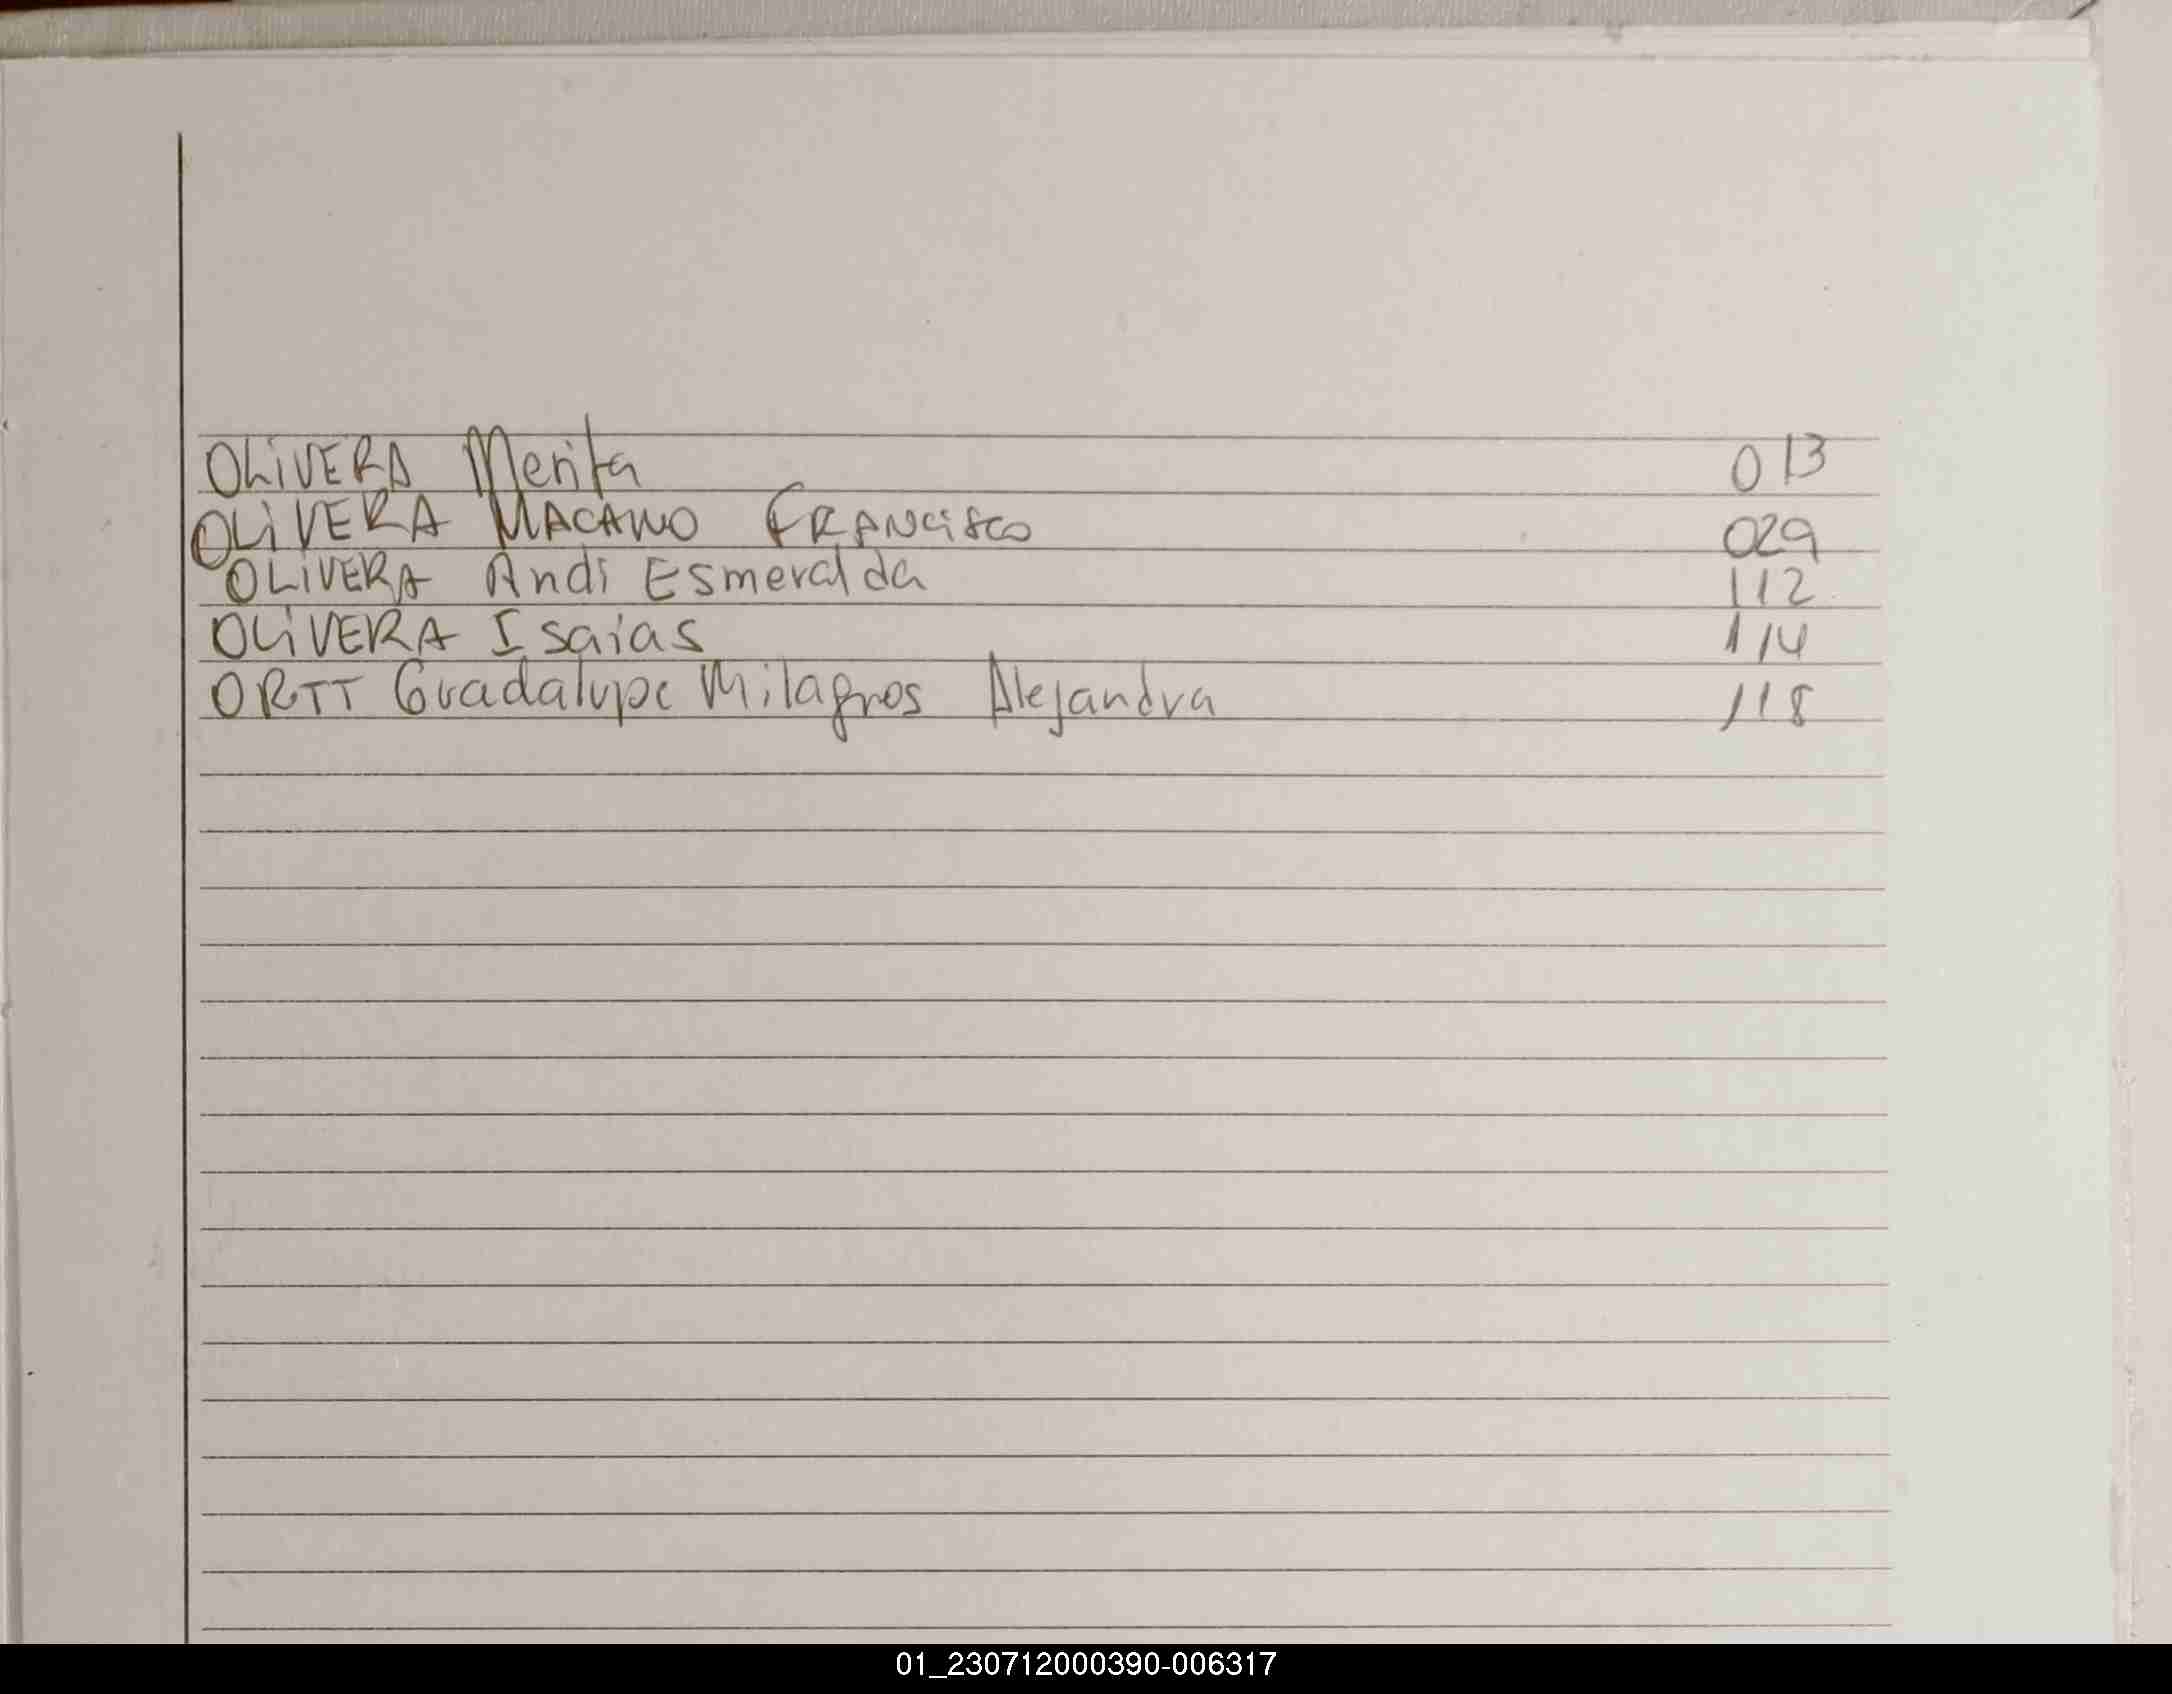 OLIVERA Merita 013
OLIVERA MACAWO FRANCISCO 029
OLIVERA Andi Esmeralda 112
OLIVERA Isaias 114
ORTT Guadalupe Milagros Alejandra 118
01_230712000390-006317